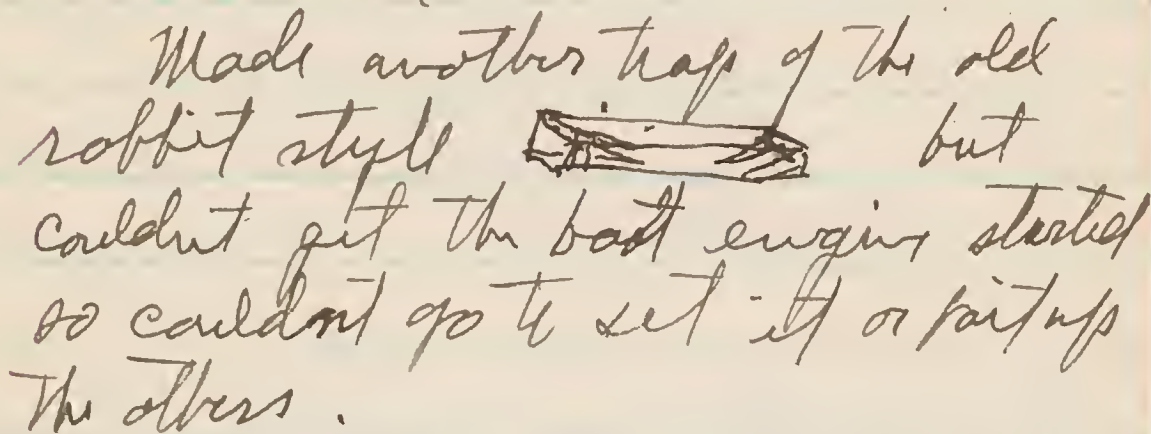 Made another trap of the old
rabbit style but
couldnt get the boat engine started
so couldnt go to set it or put up
the others.